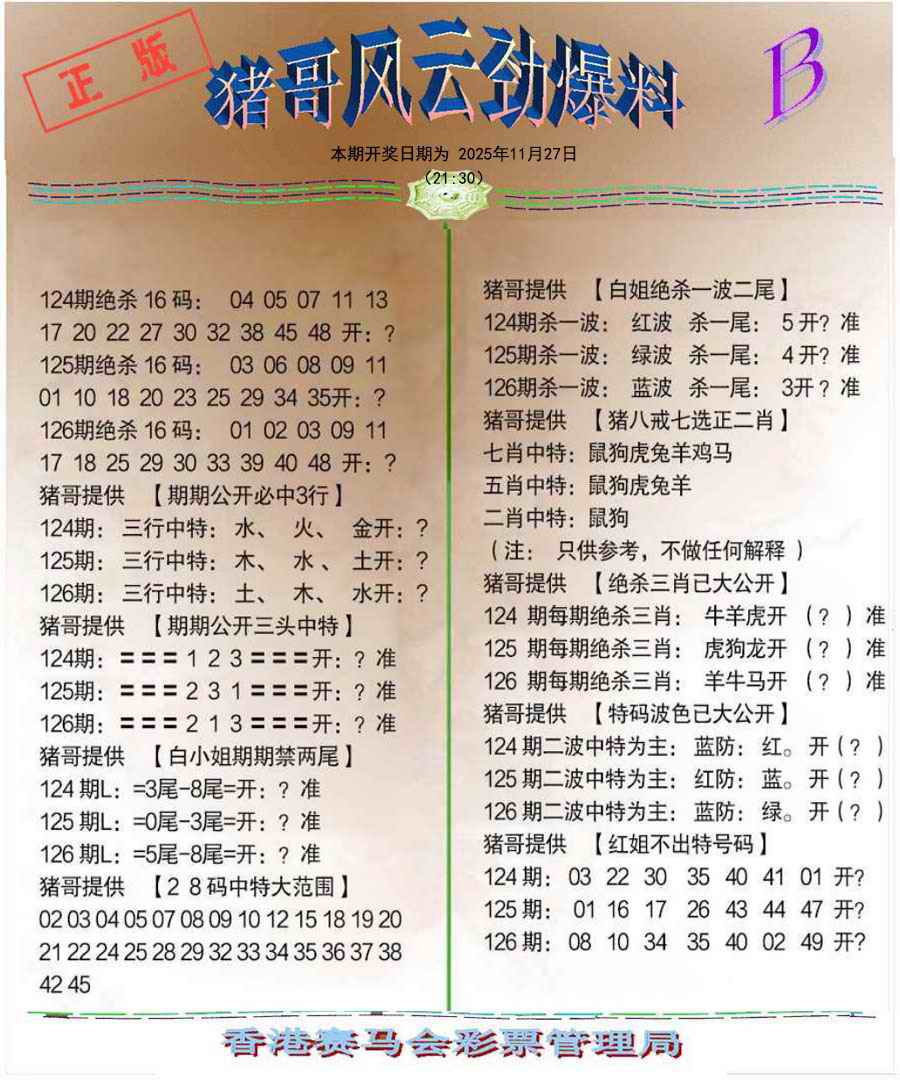 正版
猪哥风云劲爆料
B
本期开奖日期为 2025年11月27日
(21:30)
124期绝杀16码： 04 05 07 11 13
17 20 22 27 30 32 38 45 48 开：?
125期绝杀16码： 03 06 08 09 11
01 10 18 20 23 25 29 34 35开：?
126期绝杀16码： 01 02 03 09 11
17 18 25 29 30 33 39 40 48 开：?
猪哥提供 【期期公开必中3行】
124期： 三行中特：水、 火、 金开：?
125期： 三行中特：木、 水、 土开：?
126期： 三行中特：土、 木、 水开：?
猪哥提供 【期期公开三头中特】
124期：=== 1 2 3 ===开：? 准
125期：=== 2 3 1 ===开：? 准
126期：=== 2 1 3 ===开：? 准
猪哥提供 【白小姐期期禁两尾】
124期L：=3尾-8尾=开：? 准
125期L：=0尾-3尾=开：? 准
126期L：=5尾-8尾=开：? 准
猪哥提供 【28码中特大范围】
02 03 04 05 07 08 09 10 12 15 18 19 20
21 22 24 25 28 29 32 33 34 35 36 37 38
42 45
猪哥提供 【白姐绝杀一波二尾】
124期杀一波： 红波 杀一尾： 5开? 准
125期杀一波： 绿波 杀一尾： 4开? 准
126期杀一波： 蓝波 杀一尾： 3开? 准
猪哥提供 【猪八戒七选正二肖】
七肖中特：鼠狗虎兔羊鸡马
五肖中特：鼠狗虎兔羊
二肖中特：鼠狗
(注： 只供参考，不做任何解释)
猪哥提供 【绝杀三肖已大公开】
124 期每期绝杀三肖： 牛羊虎开 (?)准
125 期每期绝杀三肖： 虎狗龙开 (?)准
126 期每期绝杀三肖： 羊牛马开 (?)准
猪哥提供 【特码波色已大公开】
124期二波中特为主：蓝防：红。开(?)
125期二波中特为主：红防：蓝。开(?)
126期二波中特为主：蓝防：绿。开(?)
猪哥提供 【红姐不出特号码】
124期： 03 22 30 35 40 41 01 开?
125期： 01 16 17 26 43 44 47 开?
126期： 08 10 34 35 40 02 49 开?
香港赛马会彩票管理局